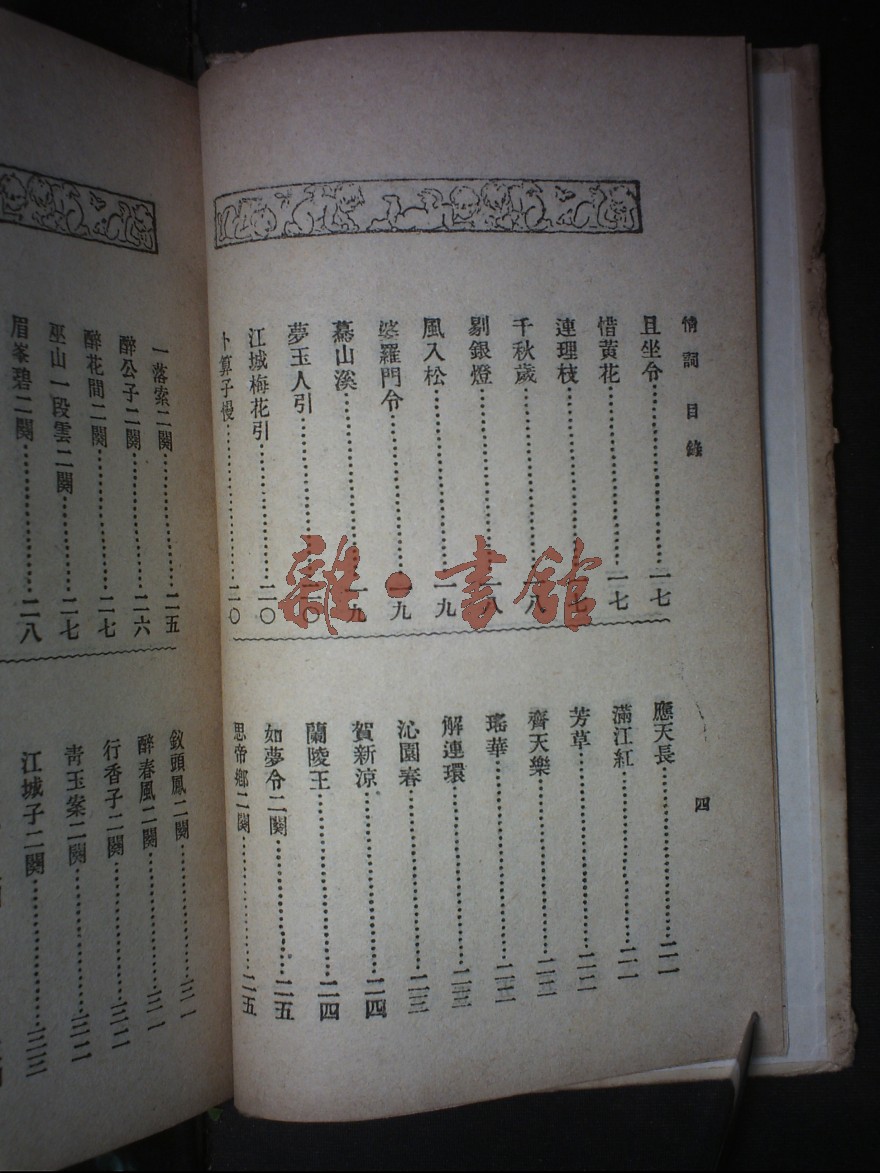 情詞 目錄
四
且坐令……一七
惜黃花……一七
連理枝……一七
千秋歲……一八
剔銀燈……一八
風入松……一九
婆羅門令……一九
驀山溪……一九
夢玉人引……二〇
江城梅花引……二〇
卜算子慢……二〇
應天長……二一
滿江紅……二一
芳草……二二
齊天樂……二二
瑤華……二三
解連環……二三
沁園春……二三
賀新涼……二四
蘭陵王……二四
如夢令二闋……二五
思帝鄉二闋……二五
一落索二闋……二五
醉公子二闋……二六
醉花間二闋……二七
巫山一段雲二闋……二七
眉峯碧二闋……二八
釵頭鳳二闋……三一
醉春風二闋……三一
行香子二闋……三二
青玉案二闋……三二
江城子二闋……三三
雜·書館